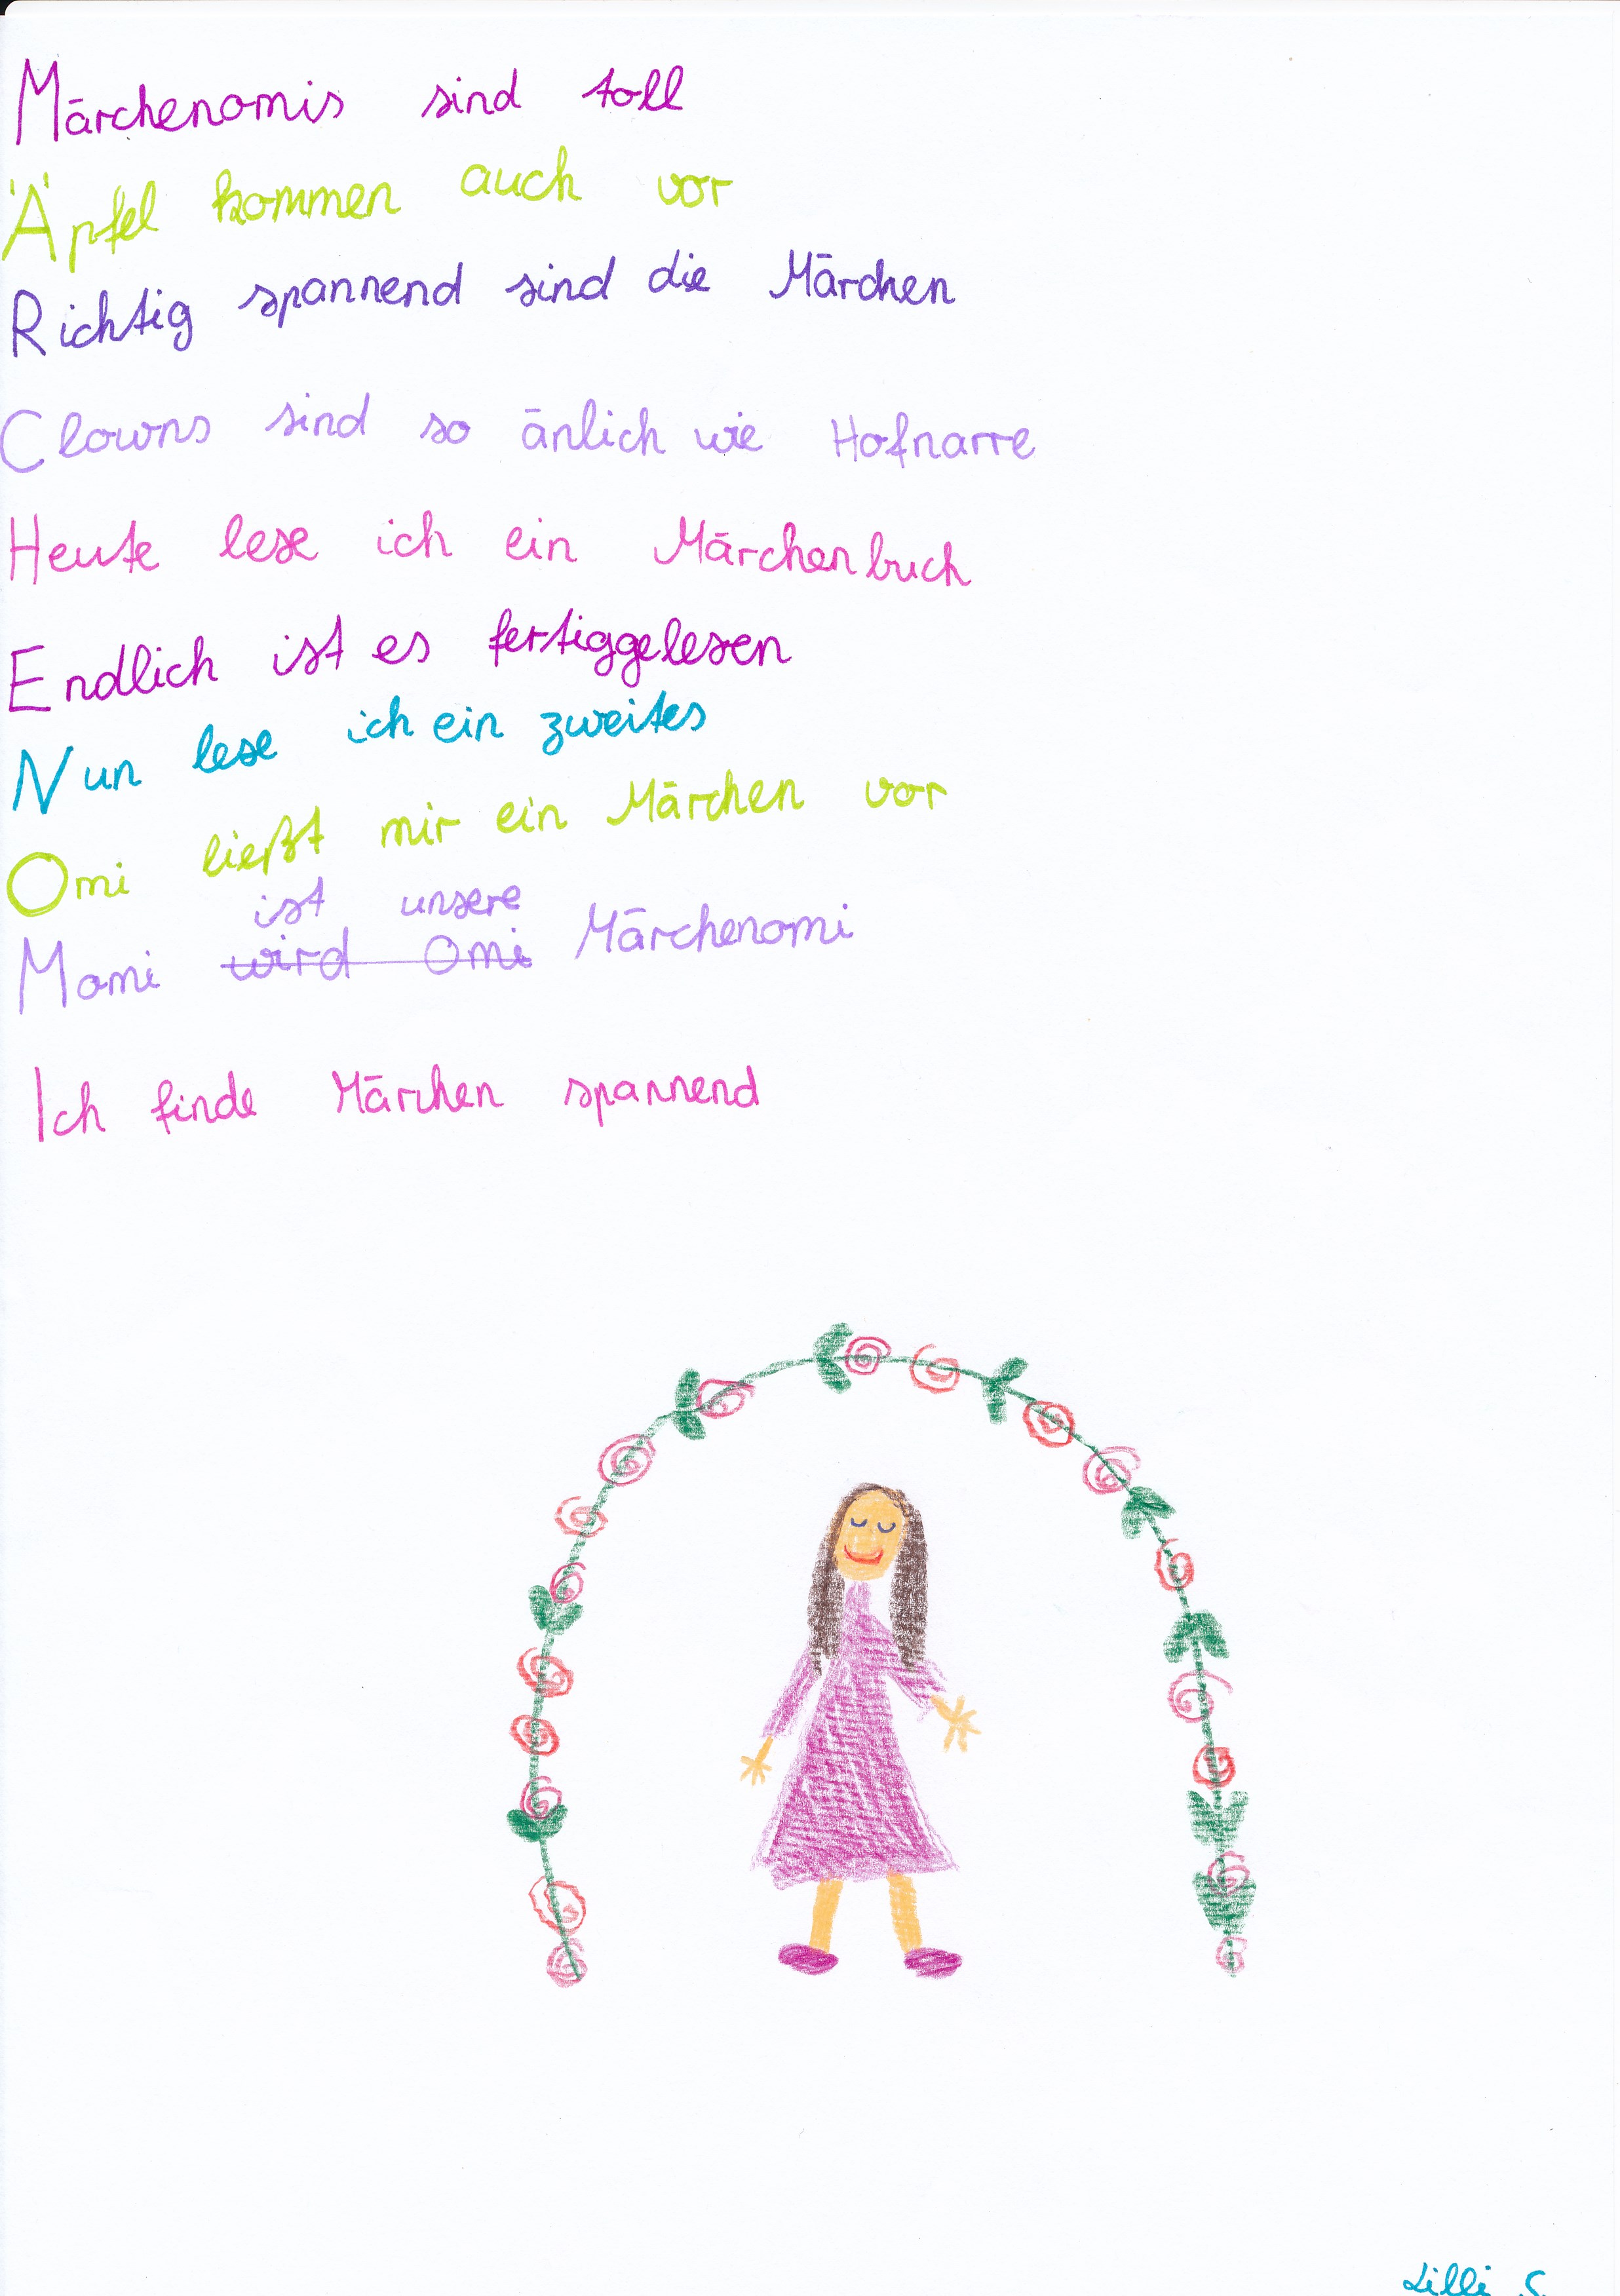 Märchenomis sind toll
Äpfel kommen auch vor
Richtig spannend sind die Märchen
Clowns sind so änlich wie Hofnarre
Heute lese ich ein Märchenbuch
Endlich ist es fertiggelesen
Nun lese ich ein zweites
Omi ließt mir ein Märchen vor
ist unsere
Momi wird Omi Märchenomi
Ich finde Märchen spannend
Lilli S.